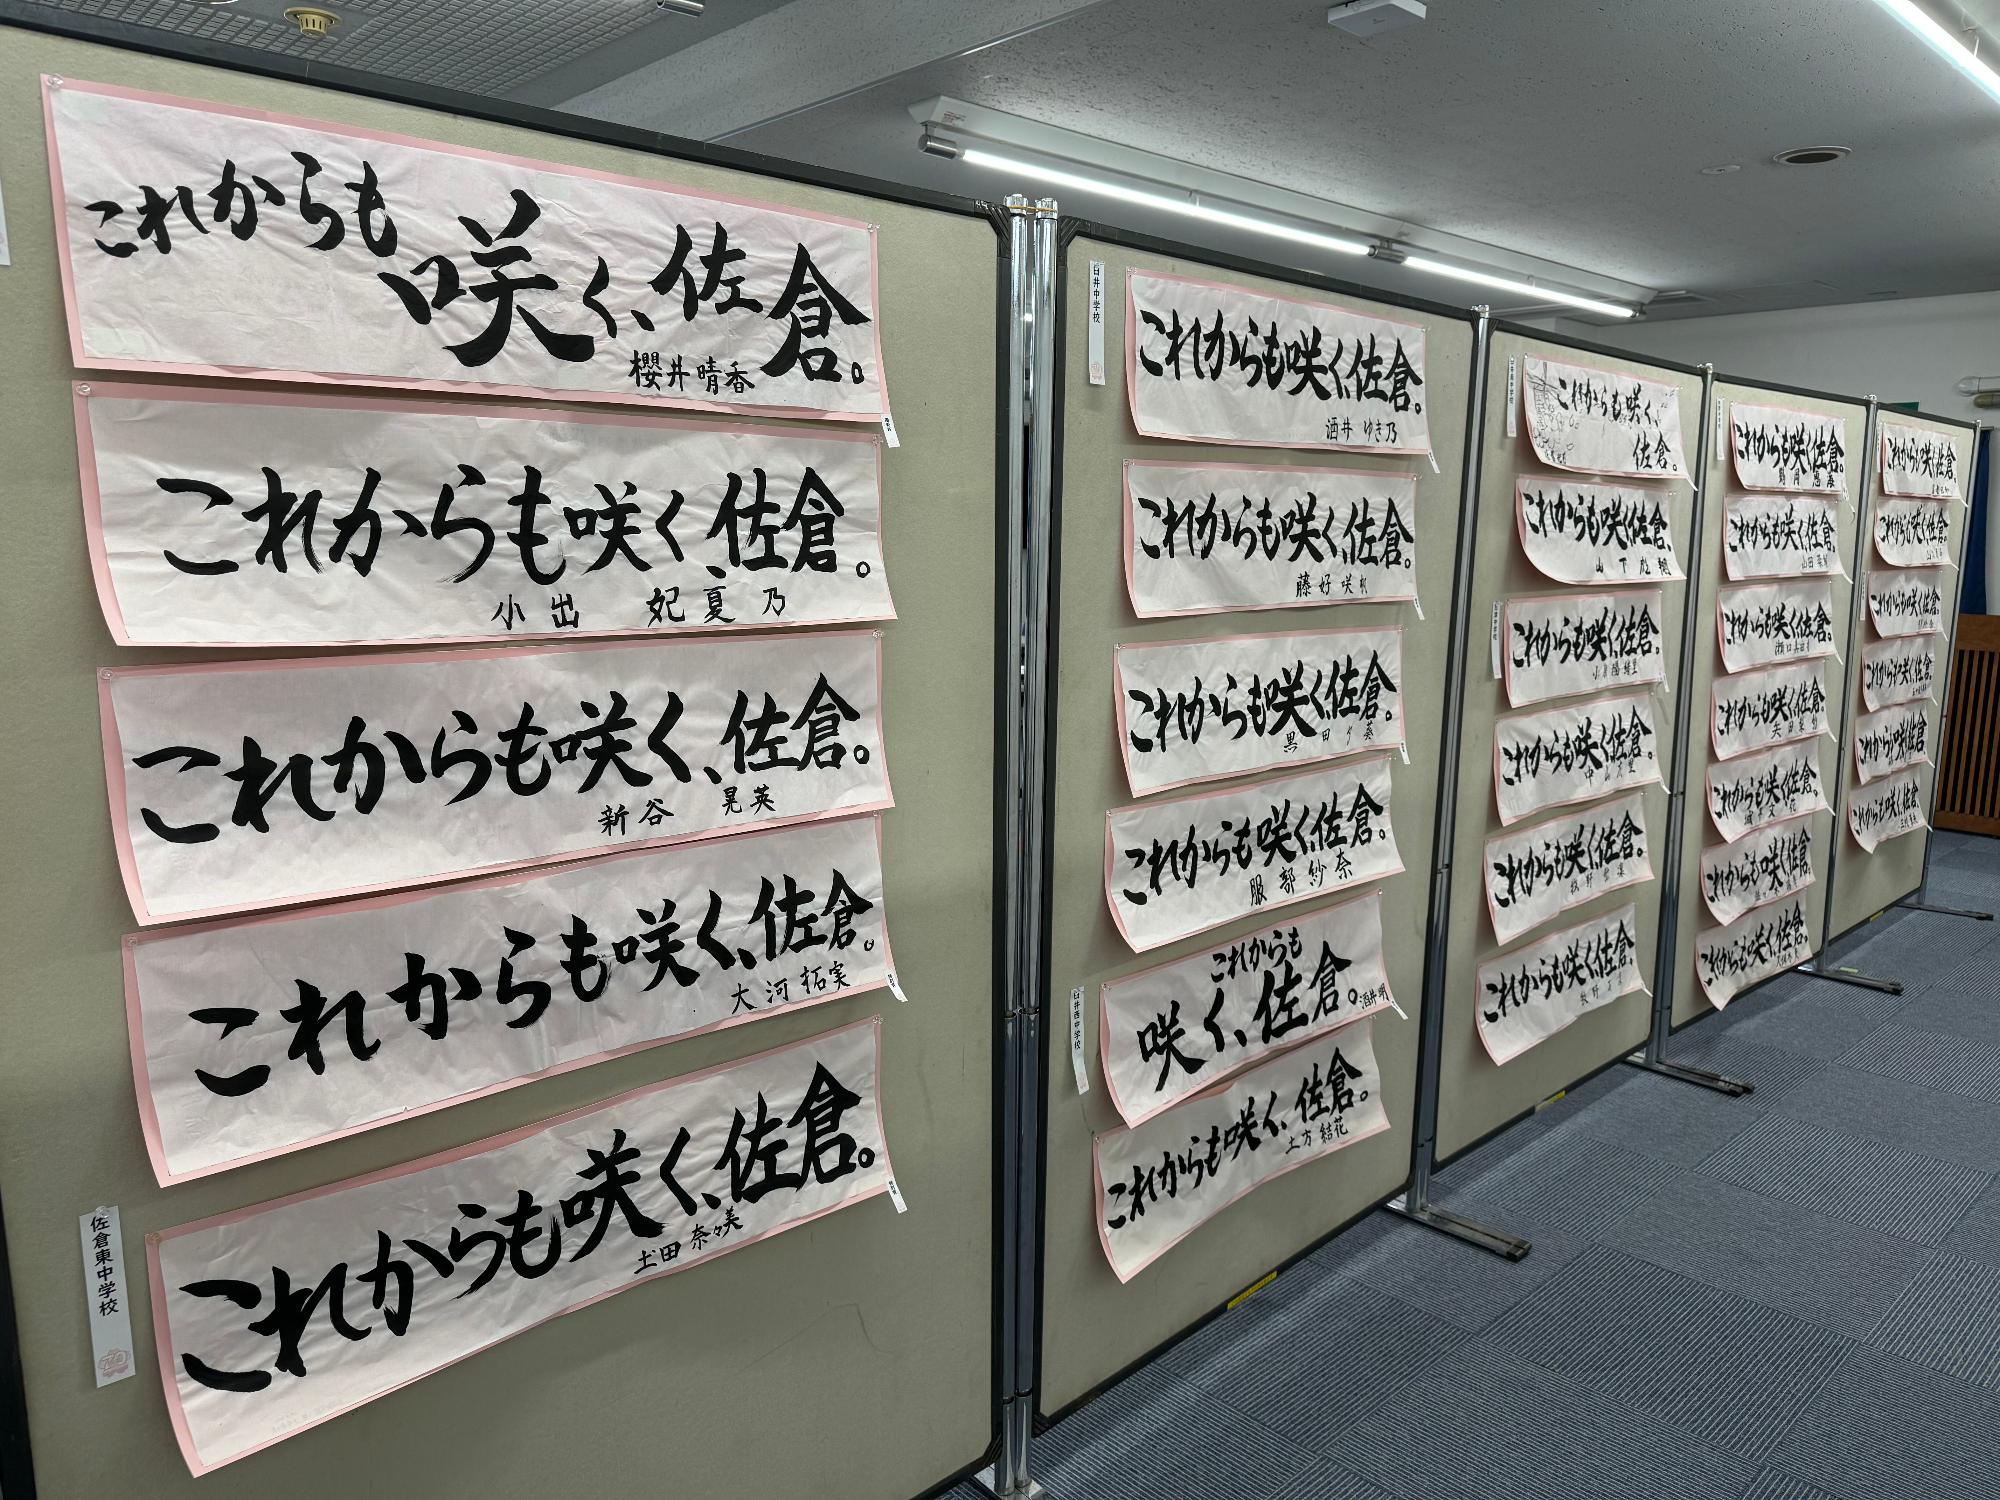 これからも咲く、佐倉。
櫻井晴香
これからも咲く、佐倉。
小出 妃夏乃
これからも咲く、佐倉。
新谷 晃英
これからも咲く、佐倉。
大河拓実
佐倉東中学校
これからも咲く、佐倉。
土田 奈々美
臼井中学校
これからも咲く、佐倉。
酒井 ゆき乃
これからも咲く、佐倉。
藤好咲帆
これからも咲く、佐倉。
黒田夕葵
これからも咲く、佐倉。
服部紗奈
臼井西中学校
これからも
咲く、佐倉。
酒井明
これからも咲く、佐倉。
土方結花
これからも咲く、
佐倉。
これからも咲く、佐倉。
山下
これからも咲く、佐倉。
これからも咲く、佐倉。
これからも咲く、佐倉。
これからも咲く、佐倉。
牧野
これからも咲く、佐倉。
これからも咲く、佐倉。
山田
これからも咲く、佐倉。
これからも咲く、佐倉。
これからも咲く、佐倉。
これからも咲く、佐倉。
これからも咲く、佐倉。
これからも咲く、佐倉。
これからも咲く、佐倉。
これからも咲く、佐倉。
これからも咲く、佐倉。
これからも咲く、佐倉。
これからも咲く、佐倉。